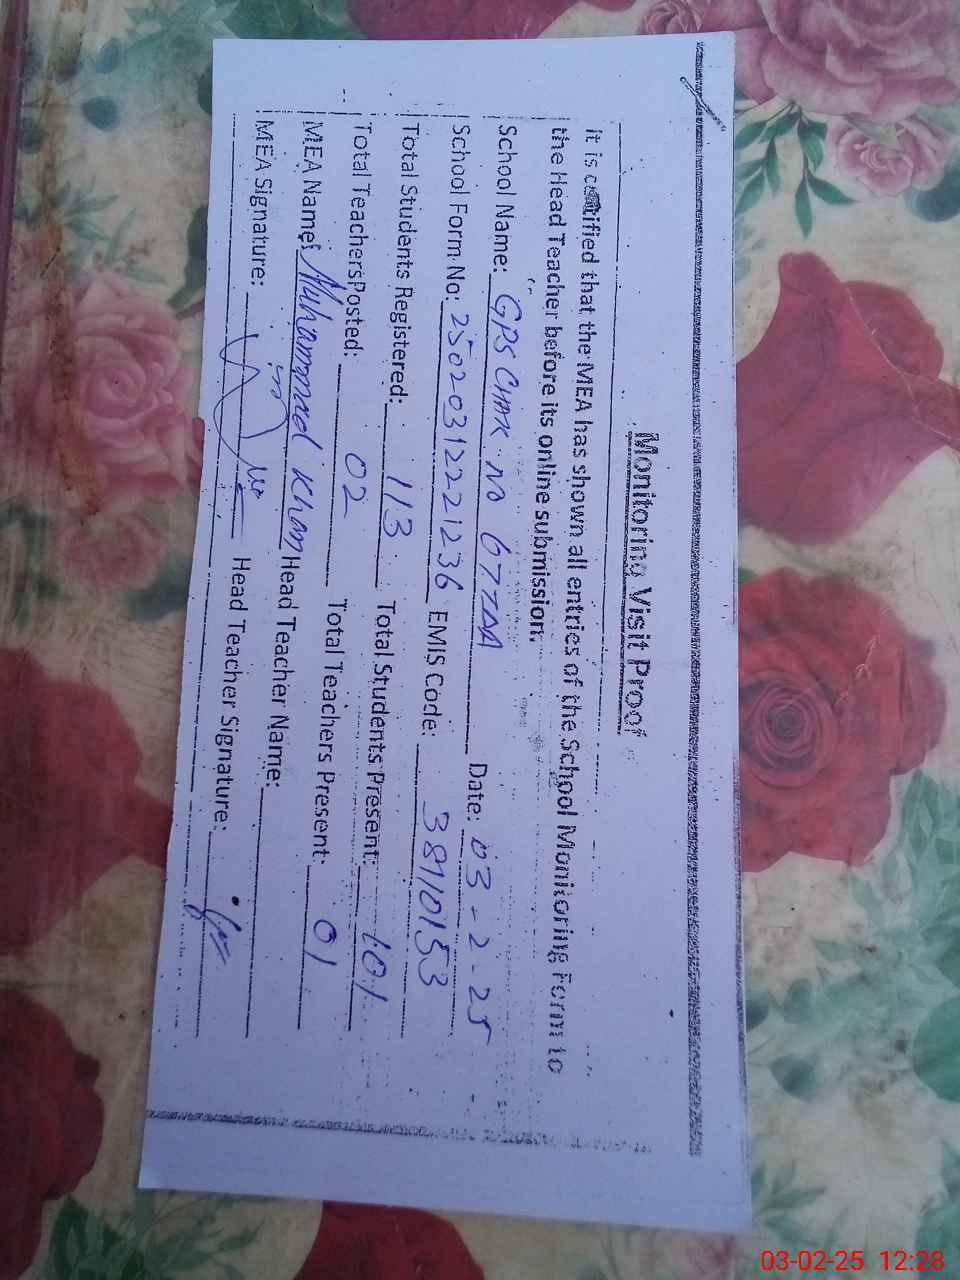 Monitoring Visit Proof
It is certified that the MEA has shown all entries of the School Monitoring Form to
the Head Teacher before its online submission.
School Name: GPS CHAK NO 67TDA Date: 03-2-25
School Form No: 2502031221236 EMIS Code: 38910153
Total Students Registered: 113 Total Students Present: 101
Total Teachers Posted: 02 Total Teachers Present: 01
MEA Name: Muhammad Khan Head Teacher Name:
MEA Signature: Head Teacher Signature:
03-02-25 12:28